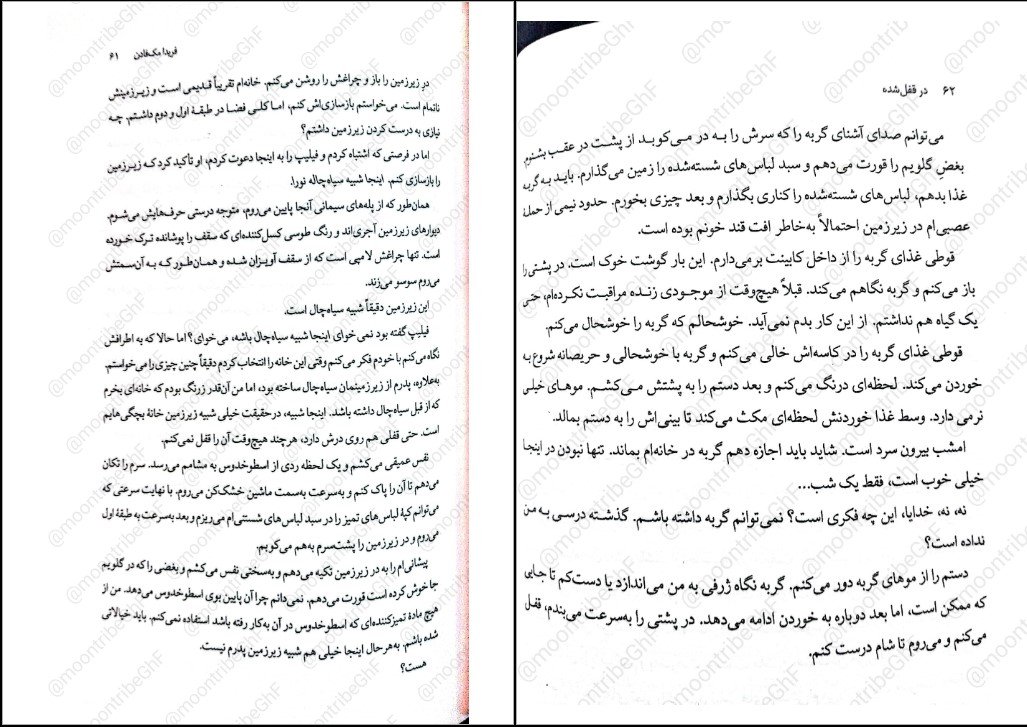 فریدا مک‌فادن   ۶۱
در زیرزمین را باز و چراغش را روشن می‌کنم. خانه‌ام تقریباً قدیمی است و زیرزمینش
ناتمام است. می‌خواستم بازسازی‌اش کنم، اما کلی فضا در طبقهٔ اول و دوم داشتم. چه
نیازی به درست کردن زیرزمین داشتم؟
اما در فرصتی که اشتباه کردم و فیلیپ را به اینجا دعوت کردم، او تأکید کرد که زیرزمین
را بازسازی کنم. اینجا شبیه سیاه‌چاله نورا.
همان‌طور که از پله‌های سیمانی آنجا پایین می‌روم، متوجه درستی حرف‌هایش می‌شوم.
دیوارهای زیرزمین آجری‌اند و رنگ طوسی کسل‌کننده‌ای که سقف را پوشانده ترک خورده
است. تنها چراغش لامپی است که از سقف آویزان شده و همان‌طور که به آن‌سمتش
می‌روم سوسو می‌زند.
این زیرزمین دقیقاً شبیه سیاه‌چال است.
فیلیپ گفته بود نمی‌خوای اینجا شبیه سیاه‌چال باشه، می‌خوای؟ اما حالا که به اطرافش
نگاه می‌کنم با خودم فکر می‌کنم وقتی این خانه را انتخاب کردم دقیقاً چنین چیزی را می‌خواستم.
به‌علاوه، پدرم از زیرزمینمان سیاه‌چال ساخته بود، اما من آن‌قدر زرنگ بودم که خانه‌ای بخرم
که از قبل سیاه‌چال داشته باشد. اینجا شبیه، در حقیقت خیلی شبیه زیرزمین خانهٔ بچگی‌هایم
است. حتی قفلی هم روی درش دارد، هرچند هیچ‌وقت آن را قفل نمی‌کنم.
نفس عمیقی می‌کشم و یک لحظه ردی از اسطوخدوس به مشامم می‌رسد. سرم را تکان
می‌دهم تا آن را پاک کنم و به‌سرعت به‌سمت ماشین خشک‌کن می‌روم. با نهایت سرعتی که
می‌توانم کپهٔ لباس‌های تمیز را در سبد لباس‌های شستنی‌ام می‌ریزم و بعد به‌سرعت به طبقهٔ اول
می‌روم و در زیرزمین را پشت‌سرم به‌هم می‌کوبم.
پیشانی‌ام را به در زیرزمین تکیه می‌دهم و به‌سختی نفس می‌کشم و بغضی را که در گلویم
جا خوش کرده است قورت می‌دهم. نمی‌دانم چرا آن پایین بوی اسطوخدوس می‌دهد. من از
هیچ مادهٔ تمیزکننده‌ای که اسطوخدوس در آن به‌کار رفته باشد استفاده نمی‌کنم. باید خیالاتی
شده باشم. به‌هرحال اینجا خیلی هم شبیه زیرزمین پدرم نیست.
هست؟
۶۲   در قفل‌شده
می‌توانم صدای آشنای گربه را که سرش را به در می‌کوبد از پشت در عقب بشنوم.
بغض گلویم را قورت می‌دهم و سبد لباس‌های شسته‌شده را زمین می‌گذارم. باید به گربه
غذا بدهم، لباس‌های شسته‌شده را کناری بگذارم و بعد چیزی بخورم. حدود نیمی از حملهٔ
عصبی‌ام در زیرزمین احتمالاً به‌خاطر افت قند خونم بوده است.
قوطی غذای گربه را از داخل کابینت برمی‌دارم. این بار گوشت خوک است. در پشتی را
باز می‌کنم و گربه نگاهم می‌کند. قبلاً هیچ‌وقت از موجودی زنده مراقبت نکرده‌ام، حتی
یک گیاه هم نداشتم. از این کار بدم نمی‌آید. خوشحالم که گربه را خوشحال می‌کنم.
قوطی غذای گربه را در کاسه‌اش خالی می‌کنم و گربه با خوشحالی و حریصانه شروع به
خوردن می‌کند. لحظه‌ای درنگ می‌کنم و بعد دستم را به پشتش می‌کشم. موهای خیلی
نرمی دارد. وسط غذا خوردنش لحظه‌ای مکث می‌کند تا بینی‌اش را به دستم بمالد.
امشب بیرون سرد است. شاید باید اجازه دهم گربه در خانه‌ام بماند. تنها نبودن در اینجا
خیلی خوب است، فقط یک شب...
نه، نه، خدایا، این چه فکری است؟ نمی‌توانم گربه داشته باشم. گذشته درسی به من
نداده است؟
دستم را از موهای گربه دور می‌کنم. گربه نگاه ژرفی به من می‌اندازد یا دست‌کم تا جایی
که ممکن است، اما بعد دوباره به خوردن ادامه می‌دهد. در پشتی را به‌سرعت می‌بندم، قفل
می‌کنم و می‌روم تا شام درست کنم.
@moontribeGhF